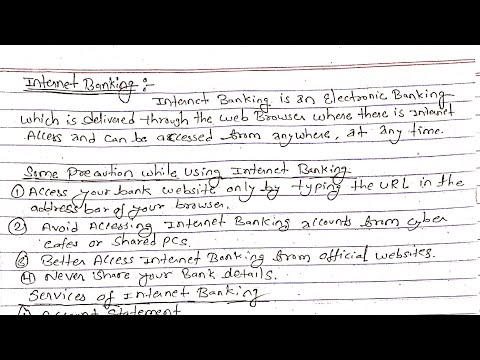 Internet Banking :-
Internet Banking is an Electronic Banking
which is delivered through the Web Browser where there is internet
Access and can be accessed from anywhere, at any time.
Some Precaution while Using Internet Banking
① Access your bank website only by typing the URL in the
address bar of your browser.
② Avoid Accessing Internet Banking accounts from cyber
cafes or Shared PCs.
③ Better Access Internet Banking from Official websites.
④ Never Share your Bank details.
Services of Internet Banking
① Account Statement